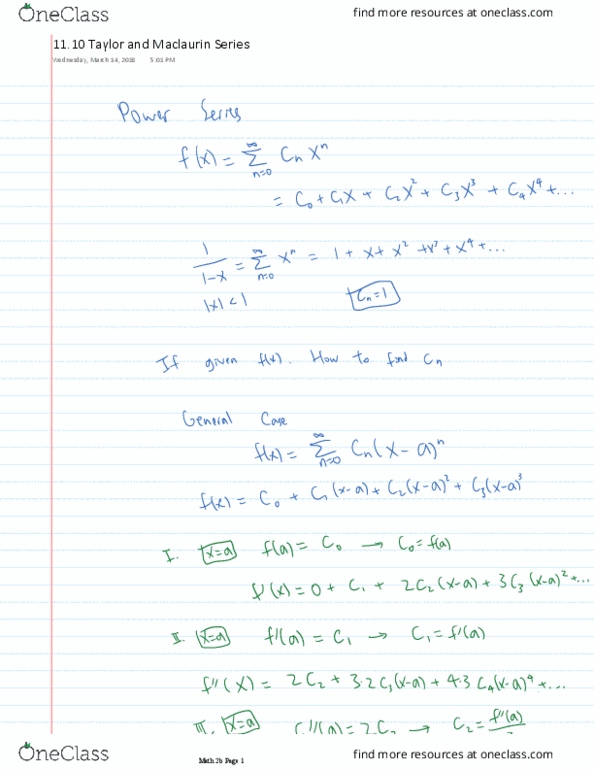 OneClass
find more resources at oneclass.com
11.10 Taylor and Maclaurin Series
Wednesday, March 14, 2018 5:01 PM
Power Series
f(x) = ∑_{n=0}^{∞} Cₙ xⁿ
= C₀ + C₁x + C₂x² + C₃x³ + C₄x⁴ + ...
1/(1-x) = ∑_{n=0}^{∞} xⁿ = 1 + x + x² + x³ + x⁴ + ...
|x| < 1 Cₙ = 1
If given f(x). How to find Cₙ
General Case
f(x) = ∑_{n=0}^{∞} Cₙ(x-a)ⁿ
f(x) = C₀ + C₁(x-a) + C₂(x-a)² + C₃(x-a)³
I. x=a f(a) = C₀ → C₀ = f(a)
f'(x) = 0 + C₁ + 2C₂(x-a) + 3C₃(x-a)² + ...
II. x=a f'(a) = C₁ → C₁ = f'(a)
f''(x) = 2C₂ + 3·2C₃(x-a) + 4·3C₄(x-a)⁴ + ...
III. x=a f''(a) = 2C₂ → C₂ = f''(a)
OneClass
Math 2b Page 1
find more resources at oneclass.com